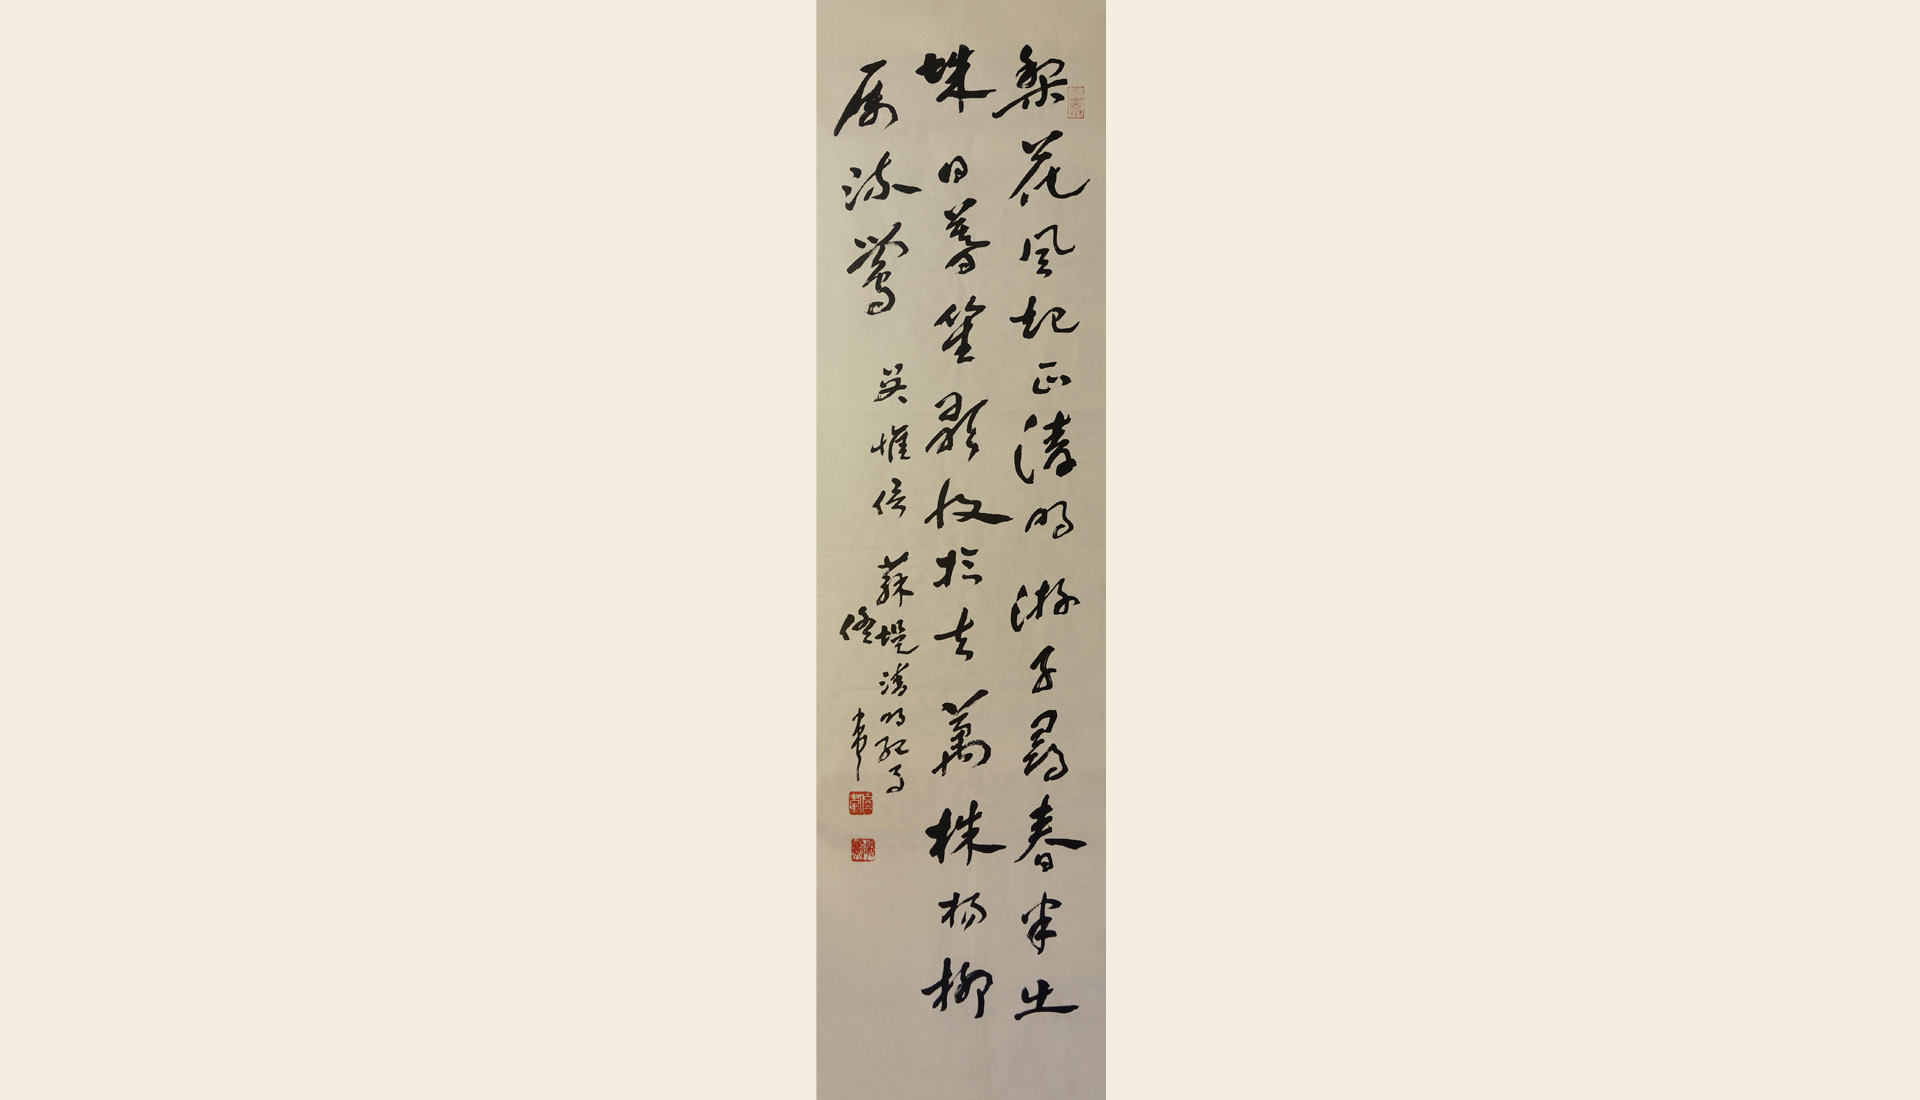 梨花风起正清明游子尋春半出
城日暮笙歌收拾去萬株杨柳
属流鶯
吴惟信蘇堤清明即事